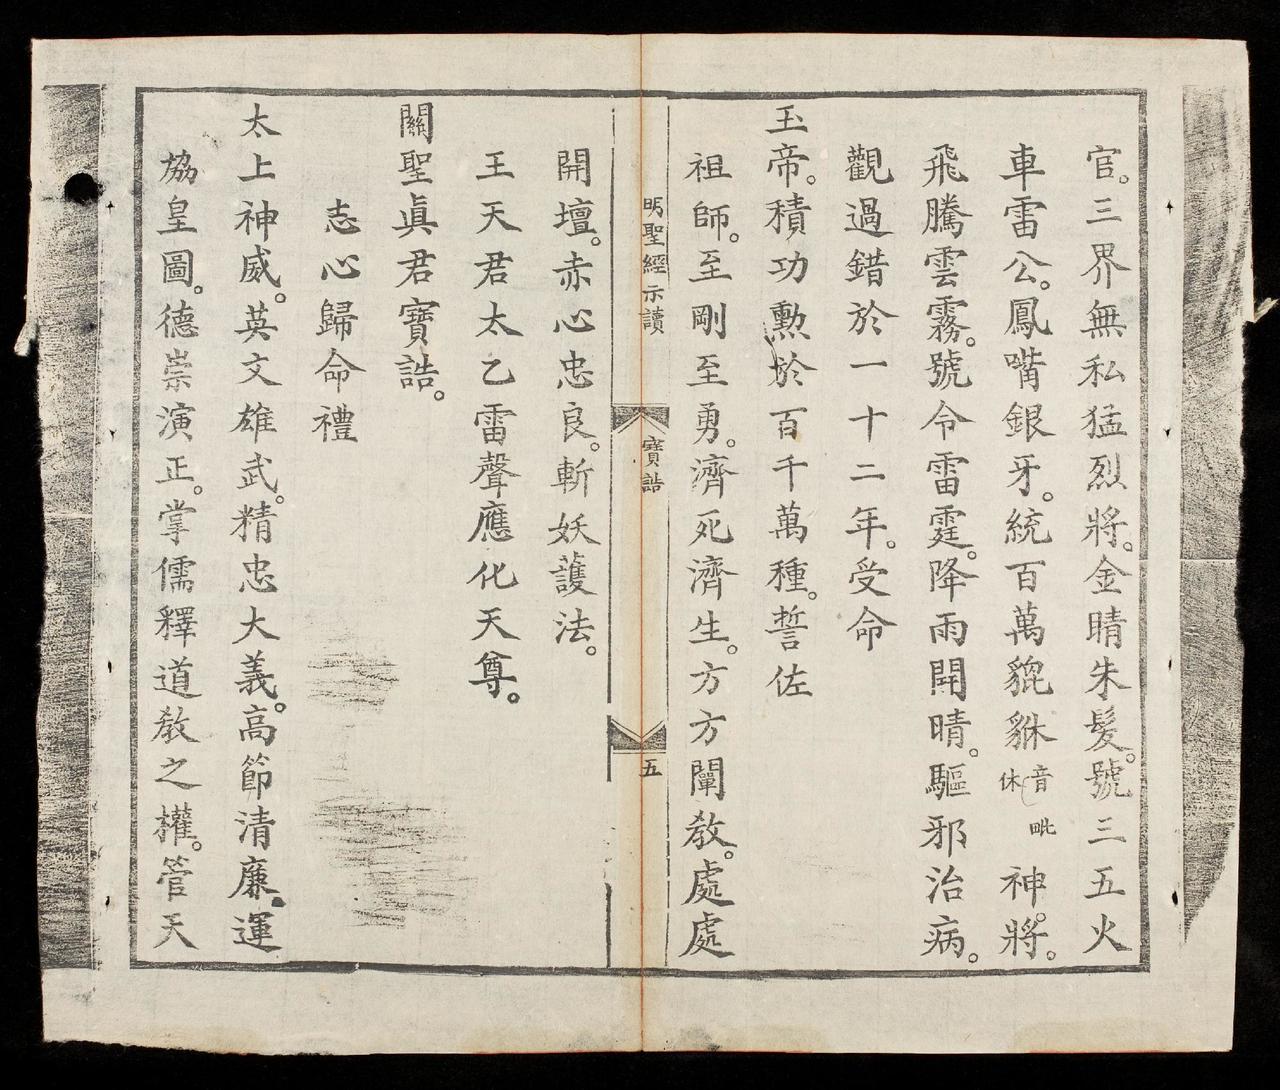 官。三界無私猛烈將。金睛朱髮。號三五火
車雷公。鳳嘴銀牙。統百萬貔貅音毗休神將。
飛騰雲霧。號令雷霆。降雨開晴。驅邪治病。
觀過錯於一十二年。受命
玉帝。積功勳於百千萬種。誓佐
祖師。至剛至勇。濟死濟生。方方闡教。處處
明聖經示讀
寶誥
五
開壇。赤心忠良。斬妖護法。
王天君太乙雷聲應化天尊。
關聖眞君寶誥。
志心歸命禮
太上神威。英文雄武。精忠大義。高節清廉。運
協皇圖。德崇演正。掌儒釋道教之權。管天